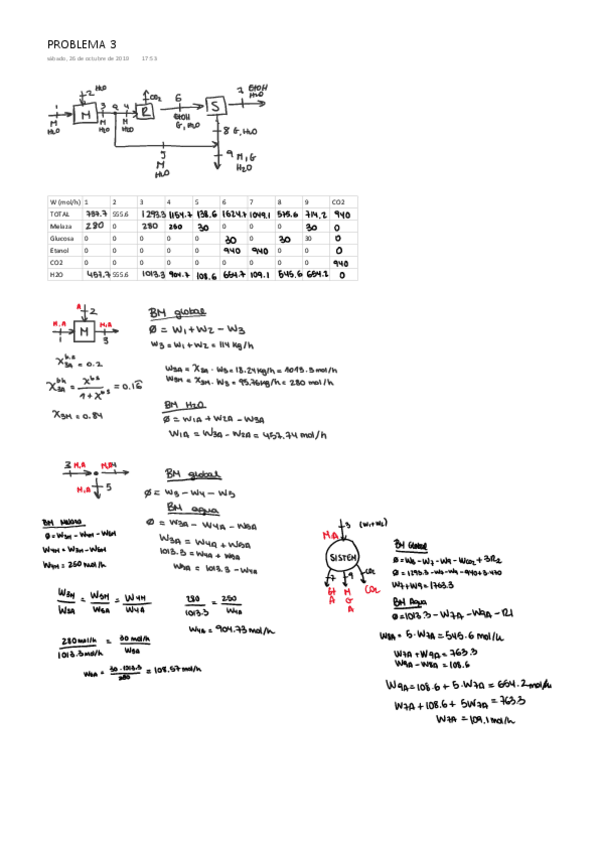 PROBLEMA 3
sábado, 26 de octubre de 2019 17:53
H2O
2 CO2 7 EtOH H2O
1 M 3 4 R 6 S
M H2O M H2O M H2O EtOH G, H2O
8 G, H2O
9 M, G H2O
5 M H2O
W (mol/h) 1 2 3 4 5 6 7 8 9 CO2
TOTAL 737.7 555.6 1293.3 1154.7 138.6 1624.7 1049.1 575.6 714.2 940
Melaza 280 0 280 250 30 0 0 0 30 0
Glucosa 0 0 0 0 0 30 0 30 30 0
Etanol 0 0 0 0 0 940 940 0 0 0
CO2 0 0 0 0 0 0 0 0 0 940
H2O 457.7 555.6 1013.3 904.7 108.6 654.7 109.1 545.6 654.2 0
A 2
M,A M M,A
1 3
BM global
0 = W1 + W2 - W3
W3 = W1 + W2 = 114 kg/h
X3A^bs = 0.2
X3A^bh = X^bs / 1 + X^bs = 0.16
X3M = 0.84
W3A = X3A · W3 = 18.24 kg/h = 1013.3 mol/h
W3M = X3M · W3 = 95.76 kg/h = 280 mol/h
BM H2O
0 = W1A + W2A - W3A
W1A = W3A - W2A = 457.74 mol/h
3 M,A M,A 4
M,A 5
BM global
0 = W3 - W4 - W5
BM agua
0 = W3A - W4A - W5A
W3A = W4A + W5A
1013.3 = W4A + W5A
W5A = 1013.3 - W4A
BM Melaza
0 = W3M - W4M - W5M
W4M = W3M - W5M
W4M = 250 mol/h
W3M / W3A = W5M / W5A = W4M / W4A
280 / 1013.3 = 250 / W4A
W4A = 904.73 mol/h
280 mol/h / 1013.3 mol/h = 30 mol/h / W5A
W5A = 30 · 1013.3 / 280 = 108.57 mol/h
3 (W1+W2)
MA
SISTEM
7 9 CO2
Et A M G A CO2
BM Global
0 = W3 - W7 - W9 - WCO2 + 3R2
0 = 1293.3 - W7 - W9 - 940 + 3·470
W7 + W9 = 1763.3
BM Agua
0 = 1013 - W7A - W9A - R1
W8A = 5 · W7A = 545.6 mol/h
W7A + W9A = 763.3
W9A - W8A = 108.6
W9A = 108.6 + 5 · W7A = 654.2 mol/h
W7A + 108.6 + 5W7A = 763.3
W7A = 109.1 mol/h